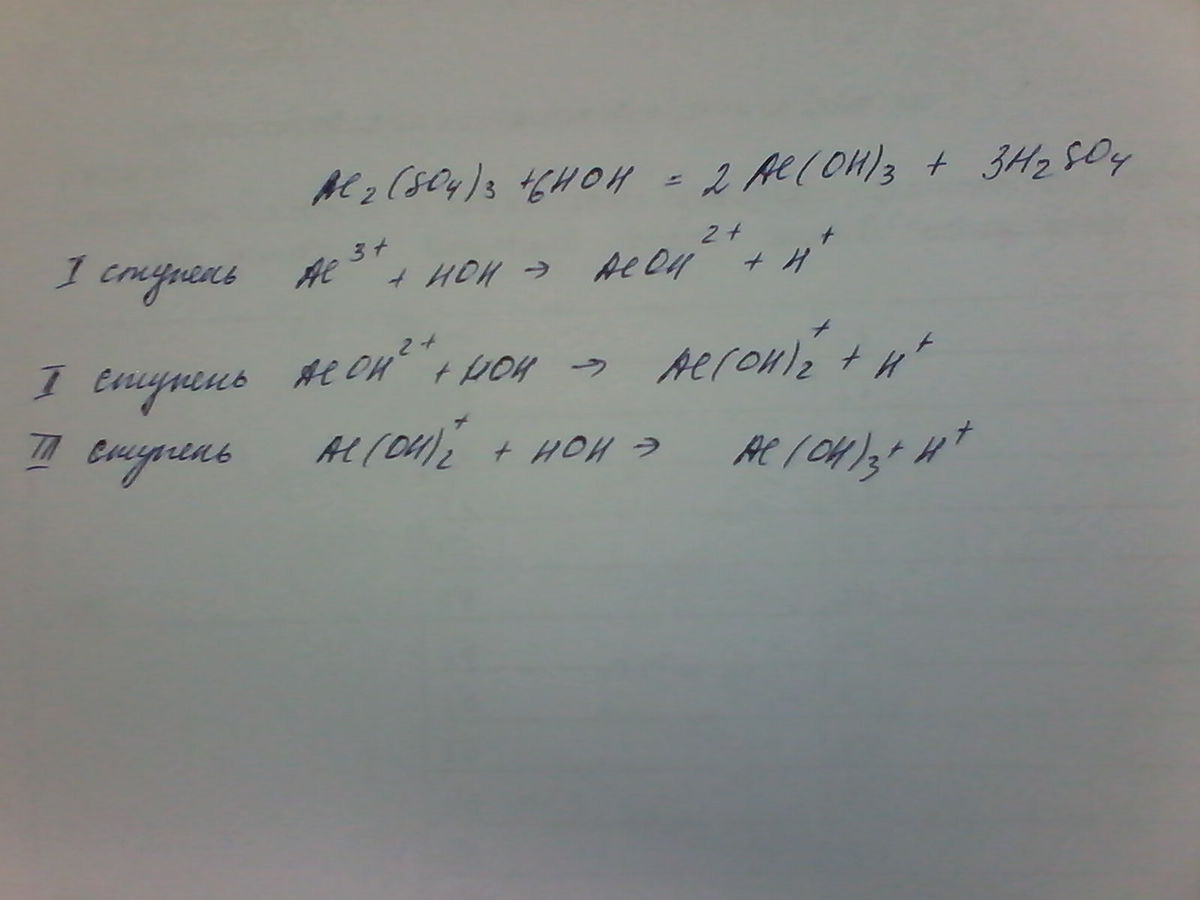 Al₂(SO₄)₃ + 6HOH = 2Al(OH)₃ + 3H₂SO₄
I ступень Al³⁺ + HOH → AlOH²⁺ + H⁺
II ступень AlOH²⁺ + HOH → Al(OH)₂⁺ + H⁺
III ступень Al(OH)₂⁺ + HOH → Al(OH)₃ + H⁺